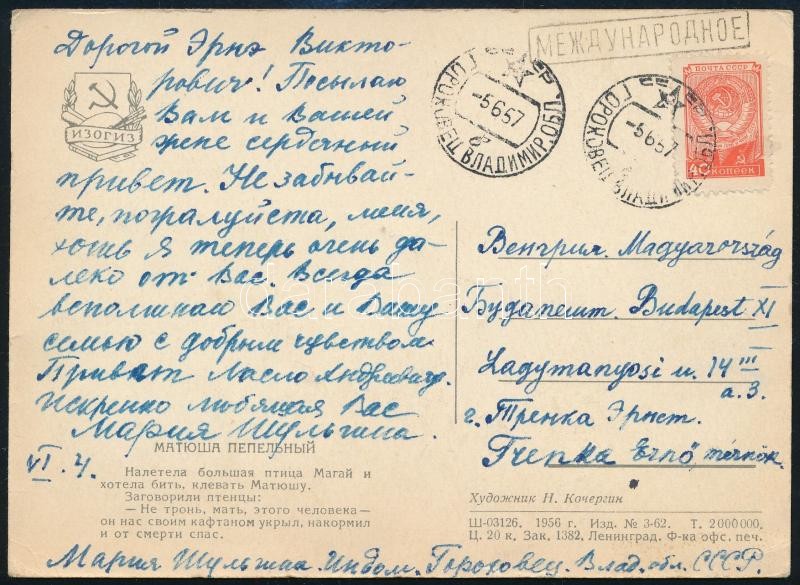 Дорогой Эрнэ Викто-
рович! Посылаю
Вам и Вашей
жене сердечный
привет. Не забывай-
те, пожалуйста, меня,
хотя я теперь очень да-
леко от Вас. Всегда
вспоминаю Вас и Вашу
семью с добрым чувством.
Привет Ласло Андреевичу.
Искренно любящая Вас
Мария Шульгина.
VI. 4.
ИЗОГИЗ
МАТЮША ПЕПЕЛЬНЫЙ
Налетела большая птица Магай и
хотела бить, клевать Матюшу.
Заговорили птенцы:
— Не тронь, мать, этого человека—
он нас своим кафтаном укрыл, накормил
и от смерти спас.
МЕЖДУНАРОДНОЕ
ГОРОХОВЕЦ ВЛАДИМИР. ОБЛ.
-5657
ГОРОХОВЕЦ ВЛАДИМИР. ОБЛ.
-5657
ПОЧТА СССР
40 КОПЕЕК
Венгрия. Magyarország
Будапешт. Budapest XI
Lagymanyosi u. 14 III
a. 3.
г. Тренка Эрнст.
Trenka Ernő, mérnök.
Художник Н. Кочергин
Ш-03126. 1956 г. Изд. № 3-62. Т. 2000000.
Ц. 20 к. Зак. 1382. Ленинград. Ф-ка офс. печ.
Мария Шульгина. Гороховец. Влад. обл. СССР.
darabanth